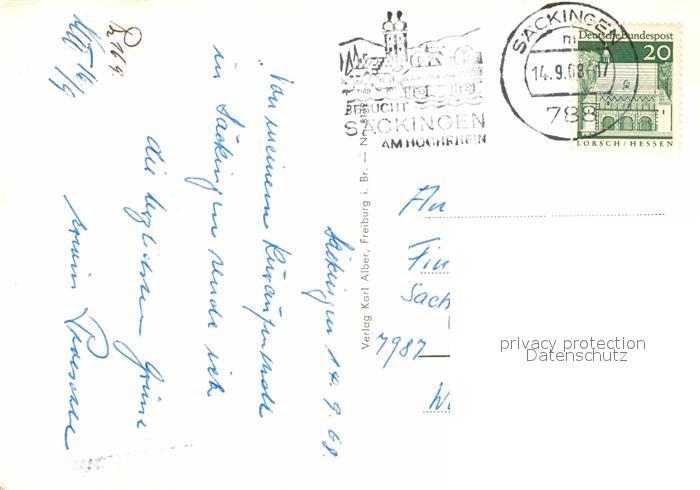 Säckingen 14.9.68.
Von meinem Kuraufenthalt
in Säckingen sende ich
die herzlichsten Grüße
Erwin
BESUCHT
SÄCKINGEN
AM HOCHRHEIN
SÄCKINGEN
14.9.68-17
788
Deutsche Bundespost
20
LORSCH/HESSEN
Verlag Karl Alber, Freiburg i. Br. — Nr.
An
Fin
Sach
7987
privacy protection
Datenschutz